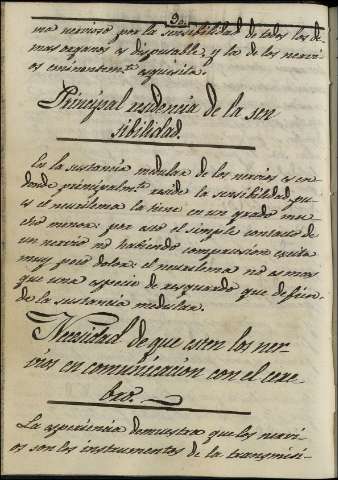 90.
ma nervioso por la sensibilidad de todos los de-
mas organos es disputable, y la de los nervi-
os eminentem.te esquisita.
Principal residencia de la sen
sibilidad.
En la sustancia medular de los nervios es en
donde principalm.te reside la sensibilidad, pu-
es el nevrilema la tiene en un grado mu
cho menor: por eso el simple contacto de
un nervio no habiendo compresion escita
muy poco dolor: el nevrilema no es mas
que una especie de resguardo que defien-
de la sustancia medular.
Necesidad de que esten los ner-
vios en comunicacion con el cere-
bro.
La esperiencia demuestra que los nervi-
os son los instrumentos de la transmisi-